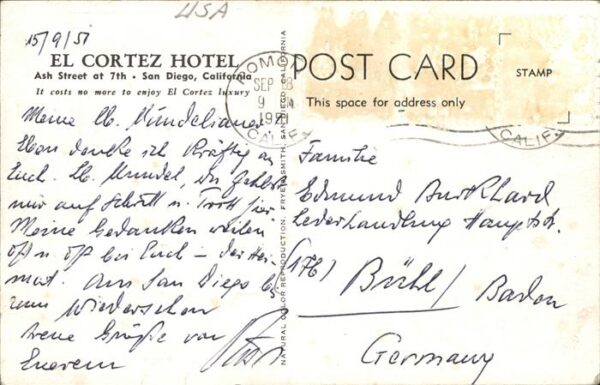 USA
15/9/51
EL CORTEZ HOTEL
Ash Street at 7th • San Diego, California
It costs no more to enjoy El Cortez luxury
Meine lb. Mündelianer
Eben denke ich kräftig an
Euch. Lb. Mundel, Du fehlst
mir auf Schritt u. Tritt hier.
Meine Gedanken weilen
oft u. oft bei Euch – der Hei-
mat. Aus San Diego bis
zum Wiedersehen
treue Grüße von
Eurem
POMONA
SEP 18
9
CALIF.
NATURAL COLOR REPRODUCTION, FRYE & SMITH, SAN DIEGO, CALIFORNIA
POST CARD
This space for address only
STAMP
CALIF.
Familie
Edmund Burkhard
Lederhandlung Hauptstr.
(17b) Bühl / Baden
Germany